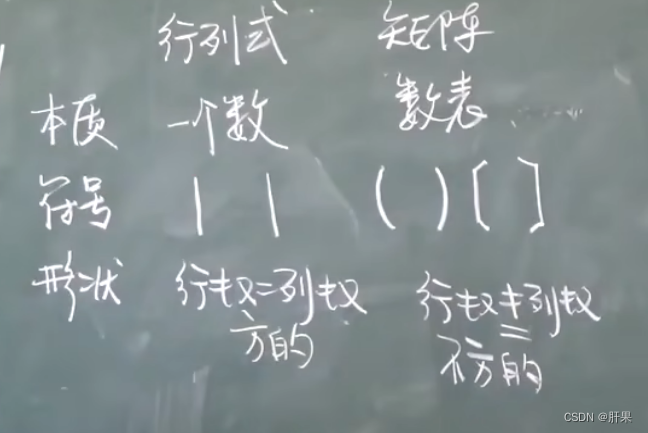 行列式 矩阵
本质 一个数 数表
符号 | | ( ) [ ]
形状 行数=列数 行数≠列数
方的 不方的
CSDN @肝果